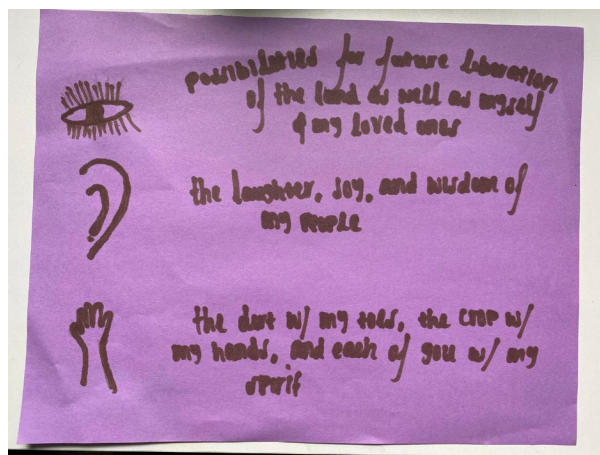 possibilities for future liberation
of the land as well as myself
& my loved ones
the laughter, joy, and wisdom of
my people
the dirt w/ my toes, the crop w/
my hands, and each of you w/ my
spirit